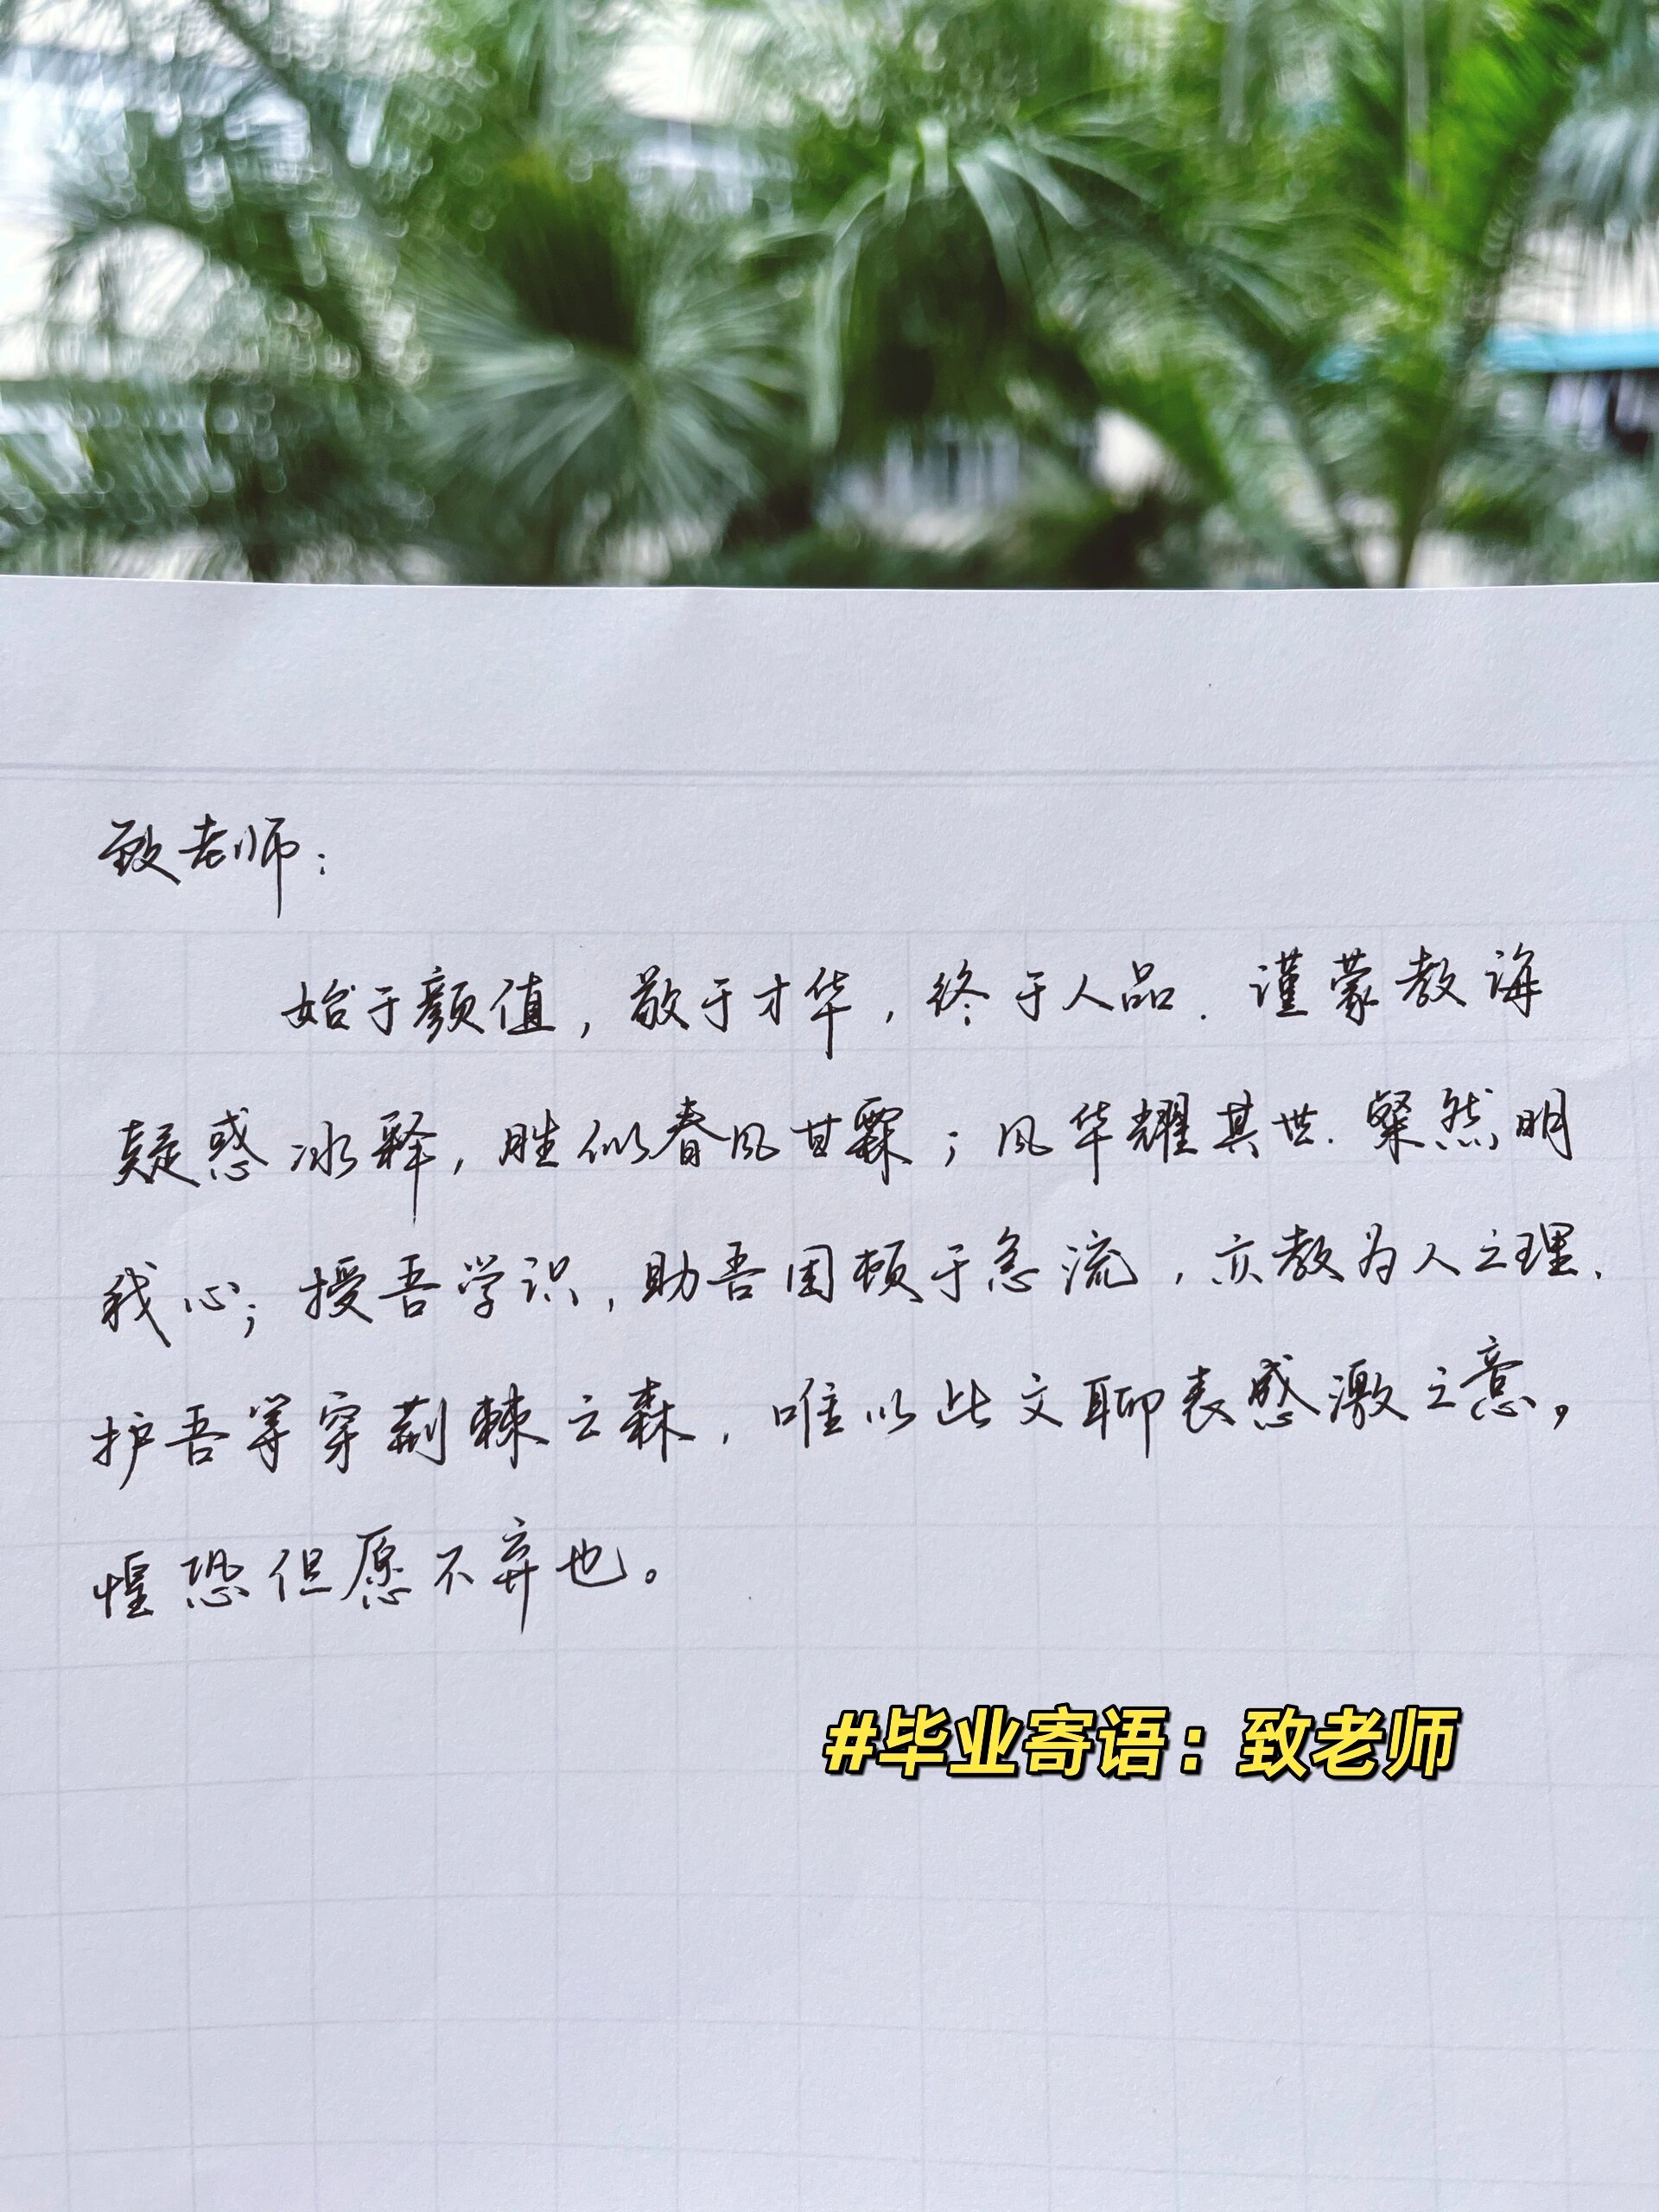 致老师：
始于颜值，敬于才华，终于人品．谨蒙教诲
疑惑冰释，胜似春风甘霖；风华耀其世．粲然明
我心；授吾学识，助吾困顿于急流，亦教为人之理、
护吾等穿荆棘之森，唯以此文聊表感激之意，
惶恐但愿不弃也。
#毕业寄语：致老师